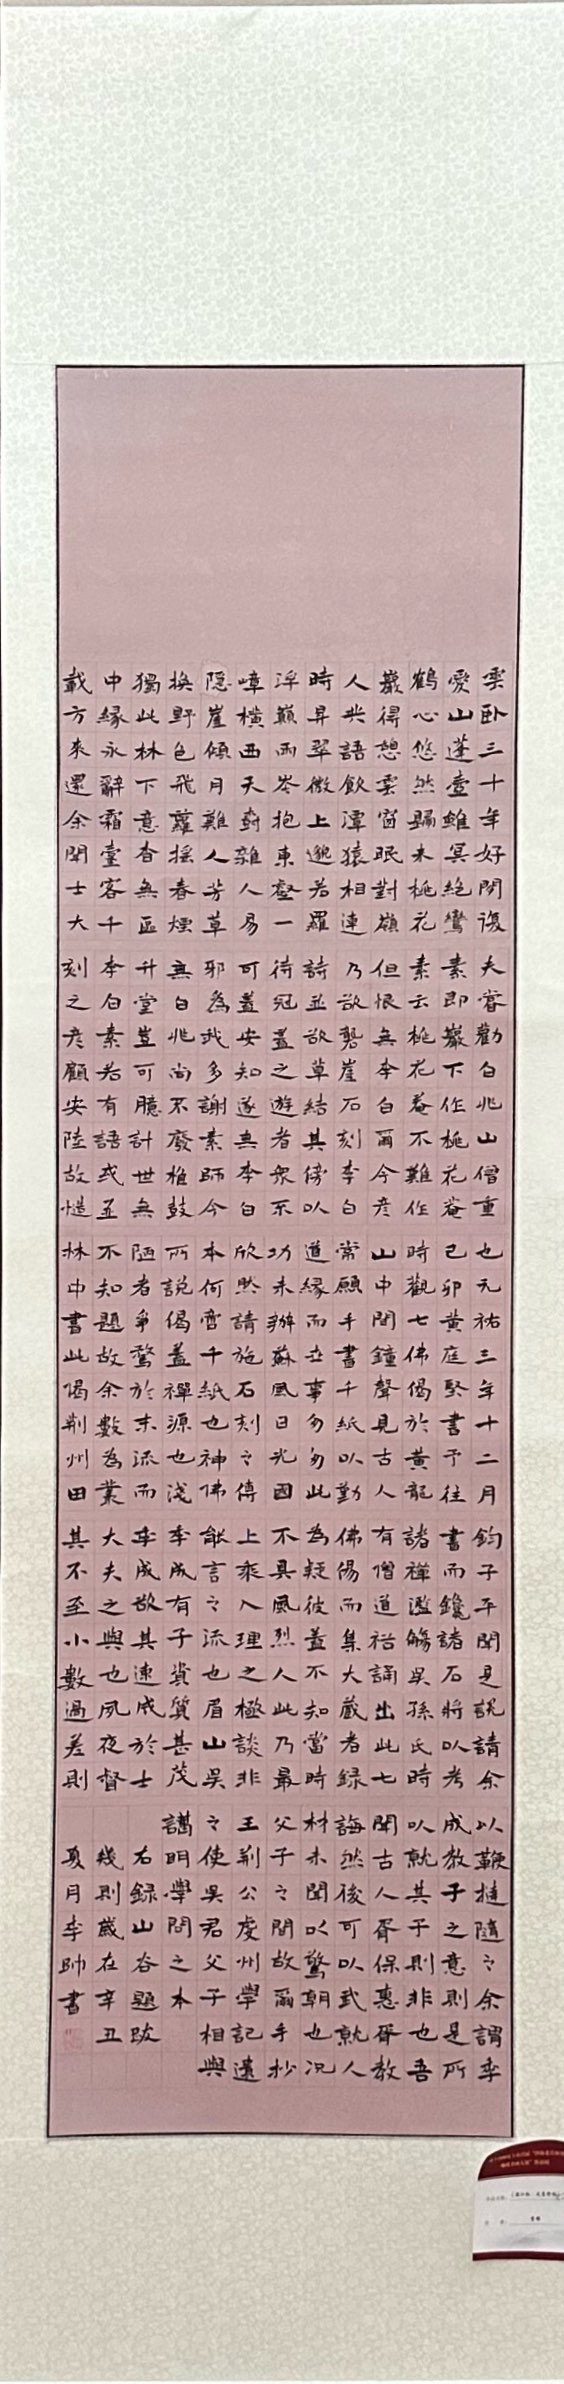 雲卧三十年好閒復
愛山蓬壺雖冥絕鸞
鶴心悠然歸來桃花
巖得憩雲窗眠對嶺
人共語飲潭猿相連
時昇翠微上邈若羅
浮巔兩岑抱東壑一
嶂橫西天樹雜人易
隱崖傾月難人芳草
換野色飛蘿搖春煙
獨此林下意杳無區
中緣永辭霜臺客千
載方來還余聞士大
夫嘗勸白兆山僧重
素即巖下作桃花菴
素云桃花菴不難作
但恨無李白爾今彥
乃欲礱崖石刻李白
詩並欲草結其傍以
待冠蓋之遊者衆不
可蓋安知遂無李白
邪為我多謝素師今
無白兆尚不廢椎鼓
升堂豈可臆計世無
李白素若有語或並
刻之彥顧安陸故愷
也元祐三年十二月
己卯黃庭堅書予往
時觀七佛偈於黃龍
山中聞鐘聲見古人
常願手書千紙以勤
道緣而世事匆匆此
功未辦蘇風日光國
欣然請施石刻之傳
本何啻千紙也神佛
所說偈蓋禪源也淺
陋者爭騖於末流而
不知題故余數為叢
林中書此偈荊州田
鈞子平聞是說請余
書而鑱諸石將以考
諸禪濫觴吳孫氏時
有僧道裕誦出此七
佛偈而集大藏者録
為疑彼蓋不知當時
不具風烈人此乃最
上乘入理之極談非
能言之流也眉山吳
季成有子資質甚茂
季成欲其速成於士
大夫之與也夙夜督
其不至小數過差則
以鞭撻隨之余謂季
成教子之意則是所
以就其子則非也吾
聞古人胥保惠胥教
誨然後可以武就人
材未聞以驚朝也況
父子之間故爾手抄
王荊公虔州學記遺
之使吳君父子相與
講明學問之本
右録山谷題跋
幾則歲在辛丑
夏月李帥書